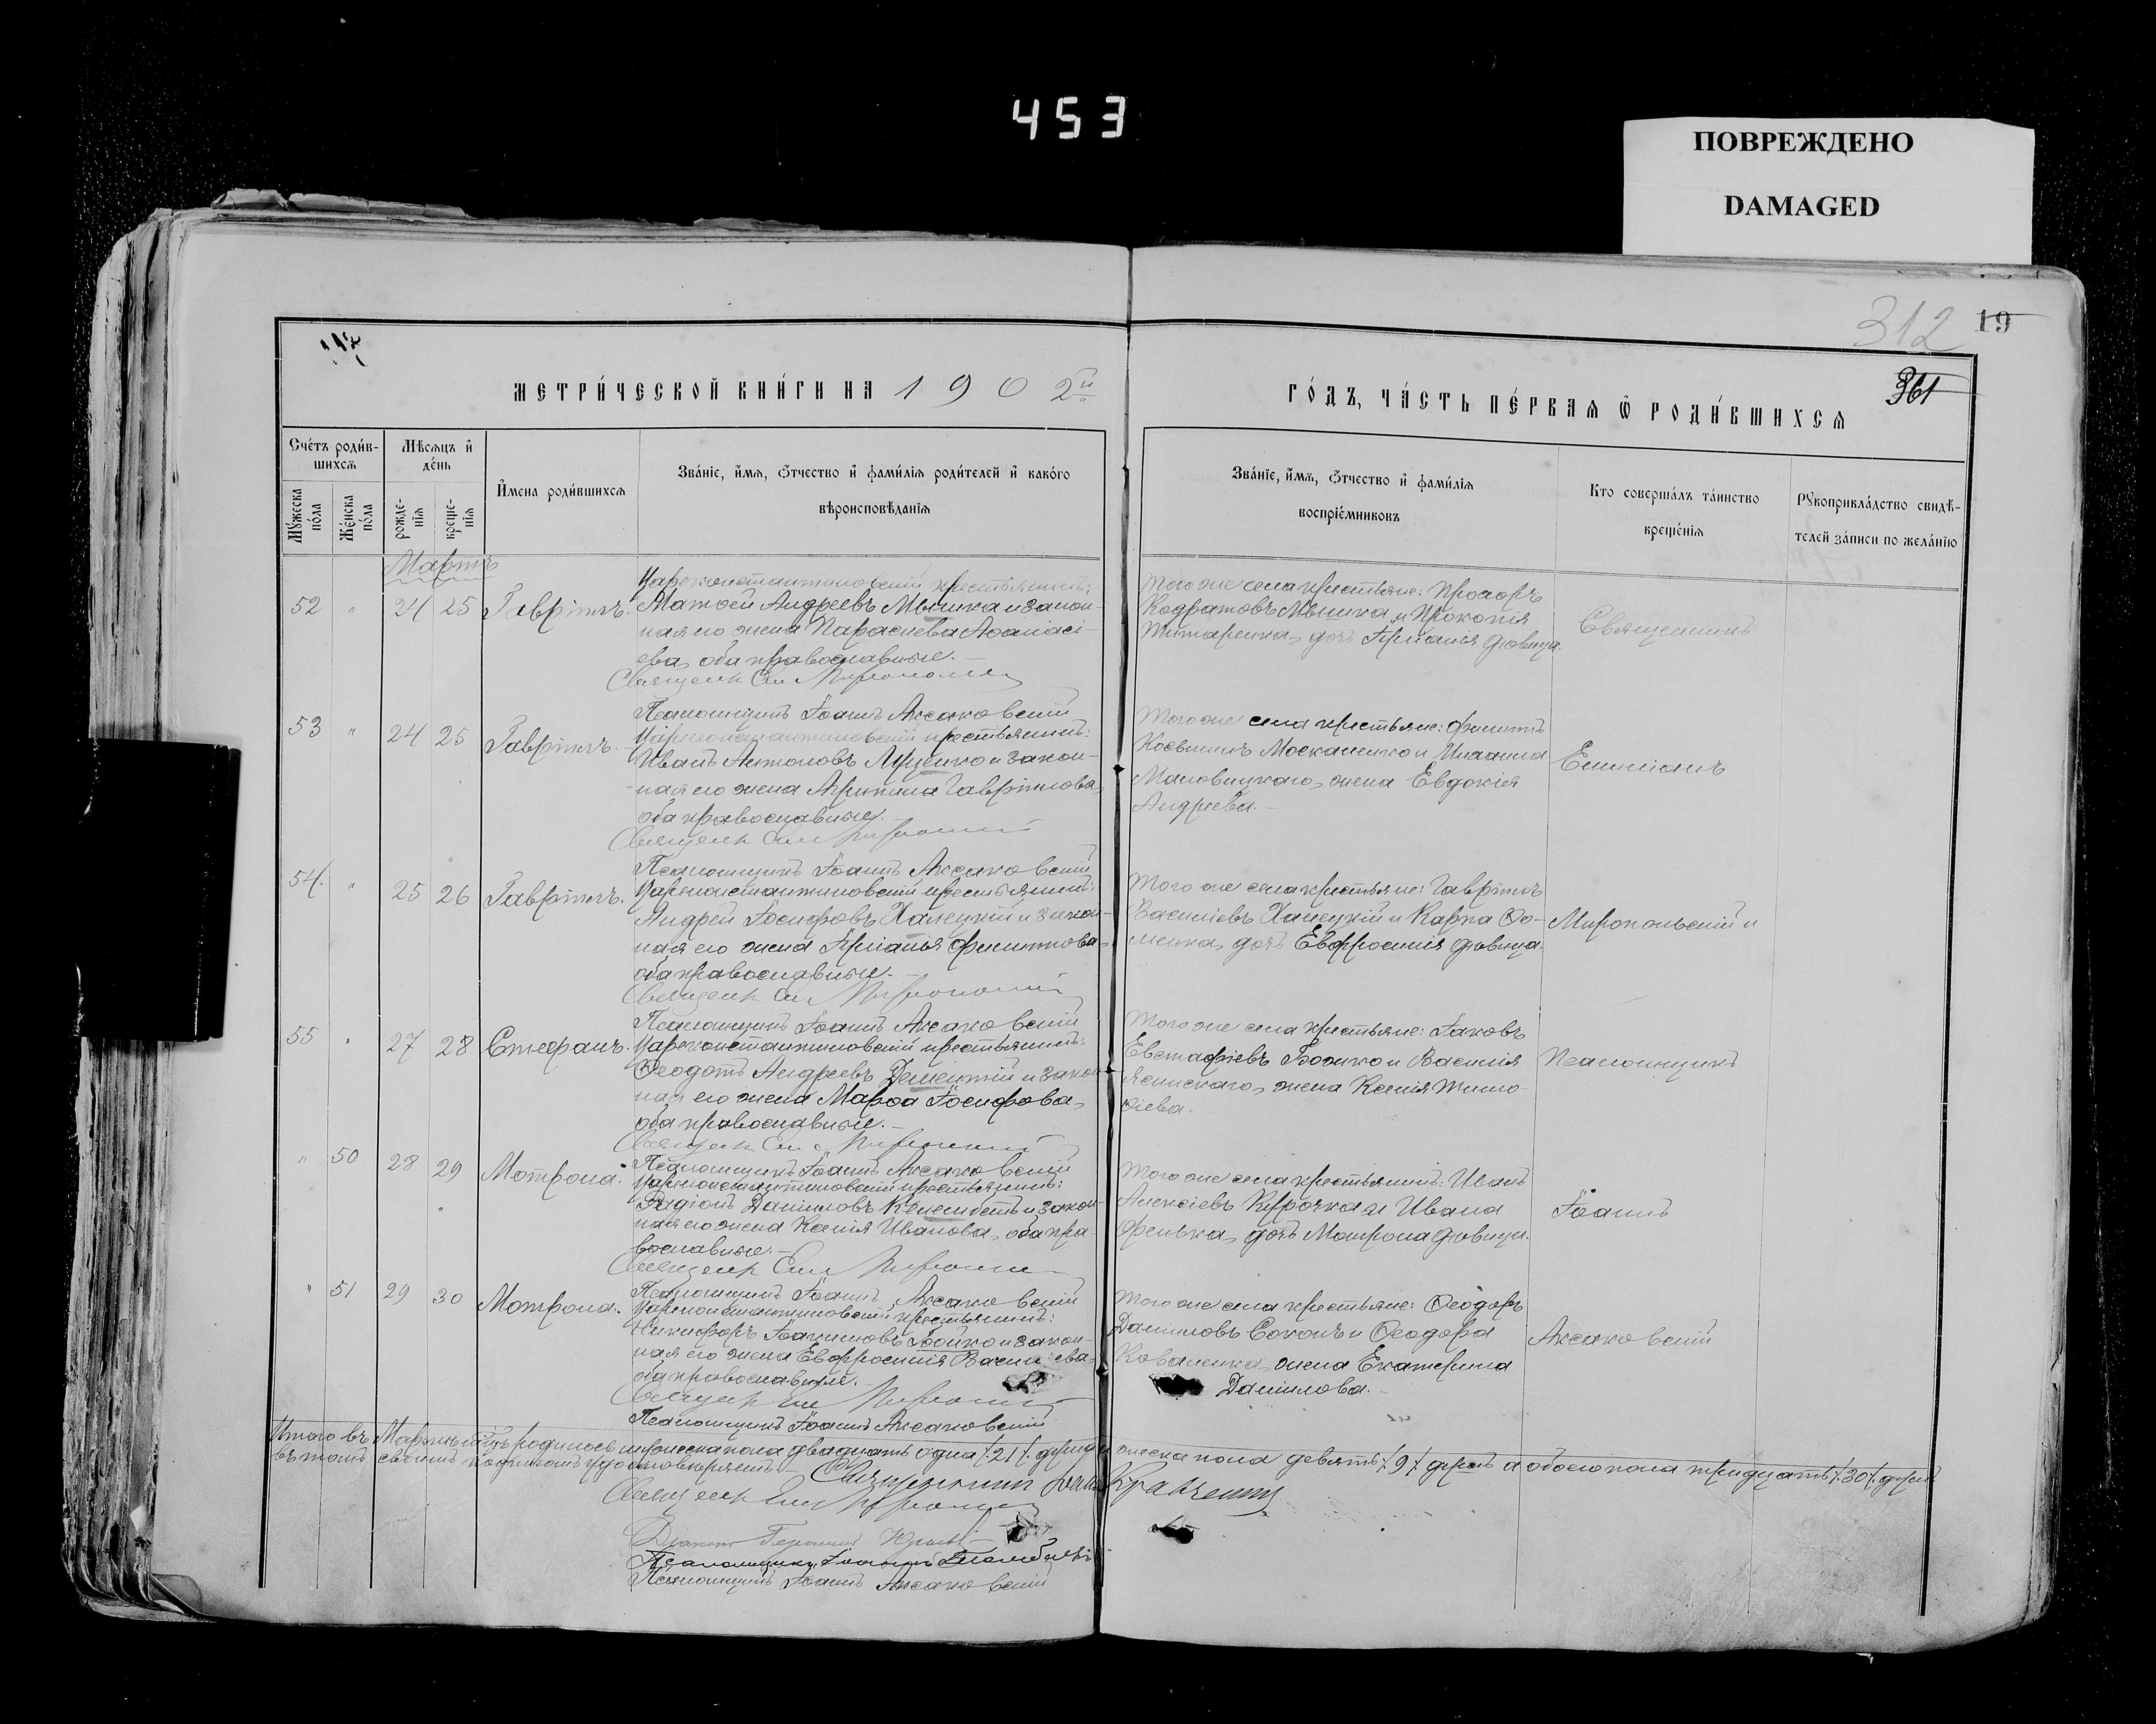 453
ПОВРЕЖДЕНО
DAMAGED
312
19
361
МЕТРИ́ЧЕСКОЙ КНИ́ГИ НА 1902й
ГО́ДЪ, ЧА́СТЬ ПЕ́РВАЯ Ѡ РОДИ́ВШИХСЯ
Сче́тъ роди́в-
шихся
Мѣсяцъ и
де́нь
Мꙋжеска по́ла
Же́нска по́ла
рожде-
нія
креще-
нія
И҆мена роди́вшихся
Зва́ніе, и҆́мя, ѻ҆́тчество и҆ фами́лія роди́телей и҆ како́го
вѣроисповѣ́данія
Зва́ніе, и҆́мя, ѻ҆́тчество и҆ фами́лія
воспріе́мниковъ
Кто соверша́лъ та́инство
креще́нія
Рꙋкоприкла́дство свидѣ́-
телей за́писи по жела́нію
Мартъ
52 " 24 25 Гавріилъ.
Цареконстантиновскій крестьянинъ:
Матѳей Андреевъ Мышка и закон-
ная его жена Параскева Аѳанасі-
ева, оба православные.
Того же села крестьяне: Прохоръ
Кодратовъ Мышка и Прокопія
Титаренка, дочь Иріанія дѣвица.
Священникъ
53 " 24 25 Гавріилъ.
Псаломщикъ Іоаннъ Аксаковскій
Цареконстантиновскій крестьянинъ:
Иванъ Антоновъ Луценко и закон-
ная его жена Агрипина Гавріилова,
оба православные.
Того же села крестьяне: Филиппъ
Москаленко и Михаила
Малѡвицкаго, жена Евдокія
Андреева.
Емиліанъ
54. " 25 26 Гавріилъ.
Псаломщикъ Іоаннъ Аксаковскій
Цареконстантиновскій крестьянинъ:
Андрей Іосифовъ Ханецкій и закон-
ная его жена Филиппова,
оба православные.
Того же села крестьяне: Гавріилъ
Василіевъ Ханецкій и Карпа Ѳо-
менка, дочь Евфросинія дѣвица.
Миропольскій и
55 " 27 28 Стефанъ.
Псаломщикъ Іоаннъ Аксаковскій
Цареконстантиновскій крестьянинъ:
Ѳеодотъ Андреевъ Демецкій и закон-
ная его жена Марѳа Іосифова,
оба православные.
Того же села крестьяне: Іаковъ
Евстафіевъ Божко и Василія
Ясинскаго, жена Ксенія Тимо-
ѳіева.
Псаломщикъ
" 50 28 29 Мотрона.
Псаломщикъ Іоаннъ Аксаковскій
Цареконстантиновскій крестьянинъ:
Радіонъ Даниловъ и закон-
ная его жена Ксенія Иванова, оба пра-
вославные.
Того же села крестьянинъ: Иванъ
Алексіевъ Курочка и Ивана
Фенька, дочь Матрона дѣвица.
Іоаннъ
" 51 29 30 Мотрона.
Псаломщикъ Іоаннъ Аксаковскій
Цареконстантиновскій крестьянинъ:
Никифоръ Іоакимовъ Бойко и закон-
ная его жена Евфросинія Василіева,
оба православные.
Того же села крестьяне: Ѳеодоръ
Даниловъ Соколъ и Ѳеодора
Коваленка, жена Екатерина
Данилова.
Аксаковскій
Псаломщикъ Іоаннъ Аксаковскій
Итого въ Мартѣ родилось мужеска пола двадцать одна /21/ душа, женска пола девять /9/ душъ а обоего пола тридцать /30/ душъ
въ томъ своимъ подписомъ удостовѣряетъ. Священникъ Іоаннъ Кравченко
Псаломщикъ Іоаннъ Аксаковскій